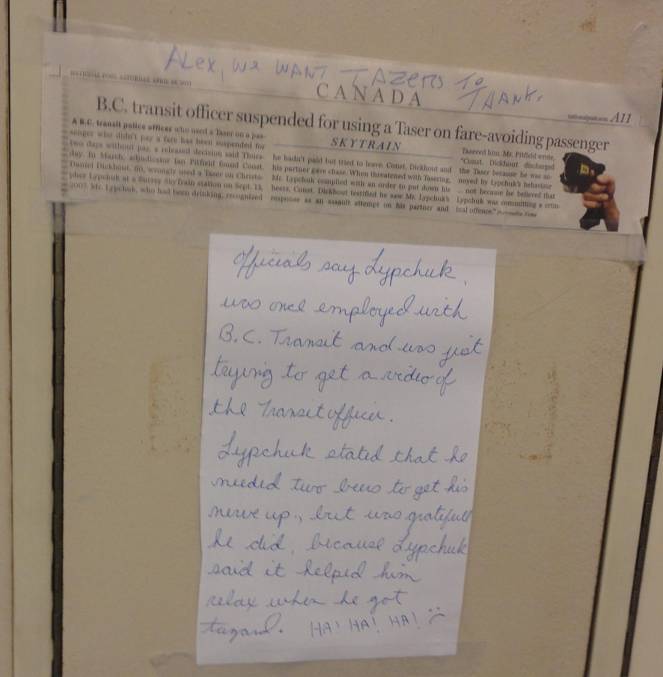 ALEX, WE WANT TAZERS TO
THANK.
NATIONAL POST, SATURDAY, APRIL
CANADA
A11
B.C. transit officer suspended for using a Taser on fare-avoiding passenger
SKYTRAIN
A B.C. transit police officer who used a Taser on a pas-
senger who didn't pay a fare has been suspended for
two days without pay, a released decision said Thurs-
day. In March, adjudicator Ian Pitfield found Const.
Daniel Dickhout, 60, wrongly used a Taser on Christo-
pher Lypchuk at a Surrey SkyTrain station on Sept. 13,
2007. Mr. Lypchuk, who had been drinking, recognized
he hadn't paid but tried to leave. Const. Dickhout and
his partner gave chase. When threatened with Tasering,
Mr. Lypchuk complied with an order to put down his
beers. Const. Dickhout testified he saw Mr. Lypchuk's
response as an assault attempt on his partner and
Tasered him. Mr. Pitfield wrote,
"Const. Dickhout discharged
the Taser because he was an-
noyed by Lypchuk's behaviour
... not because he believed that
Lypchuk was committing a crim-
inal offence." Postmedia News
Officials say Lypchuk,
was once employed with
B.C. Transit and was just
trying to get a video of
the Transit officer.
Lypchuk stated that he
needed two beers to get his
nerve up., but was gratefull
he did, because Lypchuk
said it helped him
relax when he got
tazard. HA! HA! HA!